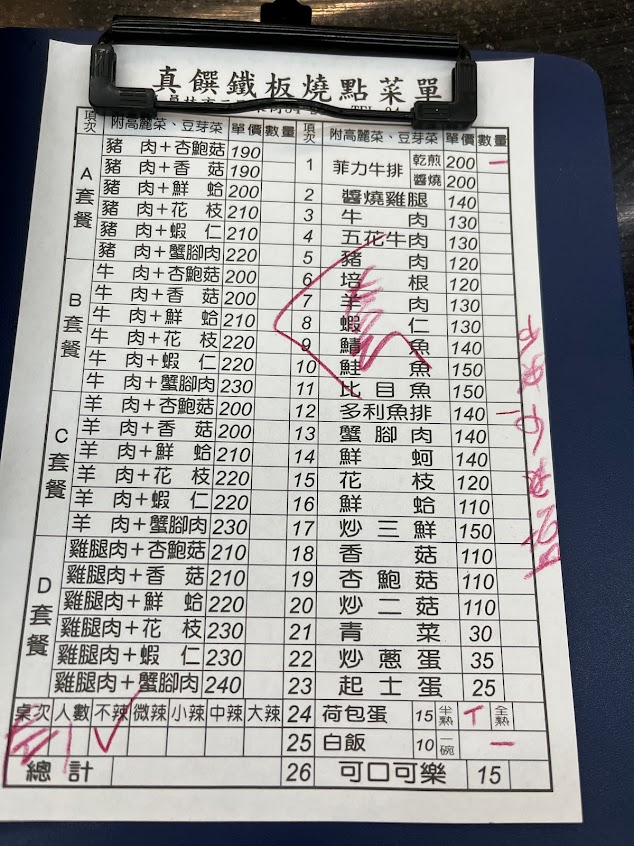 真饌鐵板燒點菜單
項次 附高麗菜、豆芽菜 單價 數量
A套餐
豬肉＋杏鮑菇 190
豬肉＋香菇 190
豬肉＋鮮蛤 200
豬肉＋花枝 210
豬肉＋蝦仁 210
豬肉＋蟹腳肉 220
B套餐
牛肉＋杏鮑菇 200
牛肉＋香菇 200
牛肉＋鮮蛤 210
牛肉＋花枝 220
牛肉＋蝦仁 220
牛肉＋蟹腳肉 230
C套餐
羊肉＋杏鮑菇 200
羊肉＋香菇 200
羊肉＋鮮蛤 210
羊肉＋花枝 220
羊肉＋蝦仁 220
羊肉＋蟹腳肉 230
D套餐
雞腿肉＋杏鮑菇 210
雞腿肉＋香菇 210
雞腿肉＋鮮蛤 220
雞腿肉＋花枝 230
雞腿肉＋蝦仁 230
雞腿肉＋蟹腳肉 240
桌次 人數 不辣 微辣 小辣 中辣 大辣
總計
項次 附高麗菜、豆芽菜 單價 數量
1 菲力牛排 乾煎 200 一
醬燒 200
2 醬燒雞腿 140
3 牛肉 130
4 五花牛肉 130
5 豬肉 120
6 培根 120
7 羊肉 130
8 蝦仁 130
9 鯖魚 140
10 鮭魚 150
11 比目魚 150
12 多利魚排 140 一
13 蟹腳肉 140
14 鮮蚵 140
15 花枝 120
16 鮮蛤 110
17 炒三鮮 150
18 香菇 110
19 杏鮑菇 110
20 炒二菇 110
21 青菜 30
22 炒蔥蛋 35
23 起士蛋 25
24 荷包蛋 15 半熟 全熟
25 白飯 10 一碗 一
26 可口可樂 15